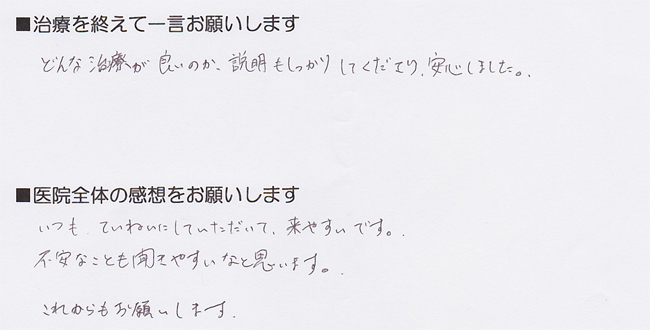 ■治療を終えて一言お願いします
どんな治療が良いのか、説明もしっかりしてくださり、安心しました。
■医院全体の感想をお願いします
いつも、ていねいにしていただいて、来やすいです。
不安なことも聞きやすいなと思います。
これからもお願いします。